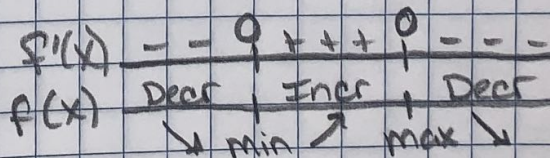 f'(x) - - 0 + + + 0 - - -
f(x) Decr Incr Decr
↘ min ↗ max ↘